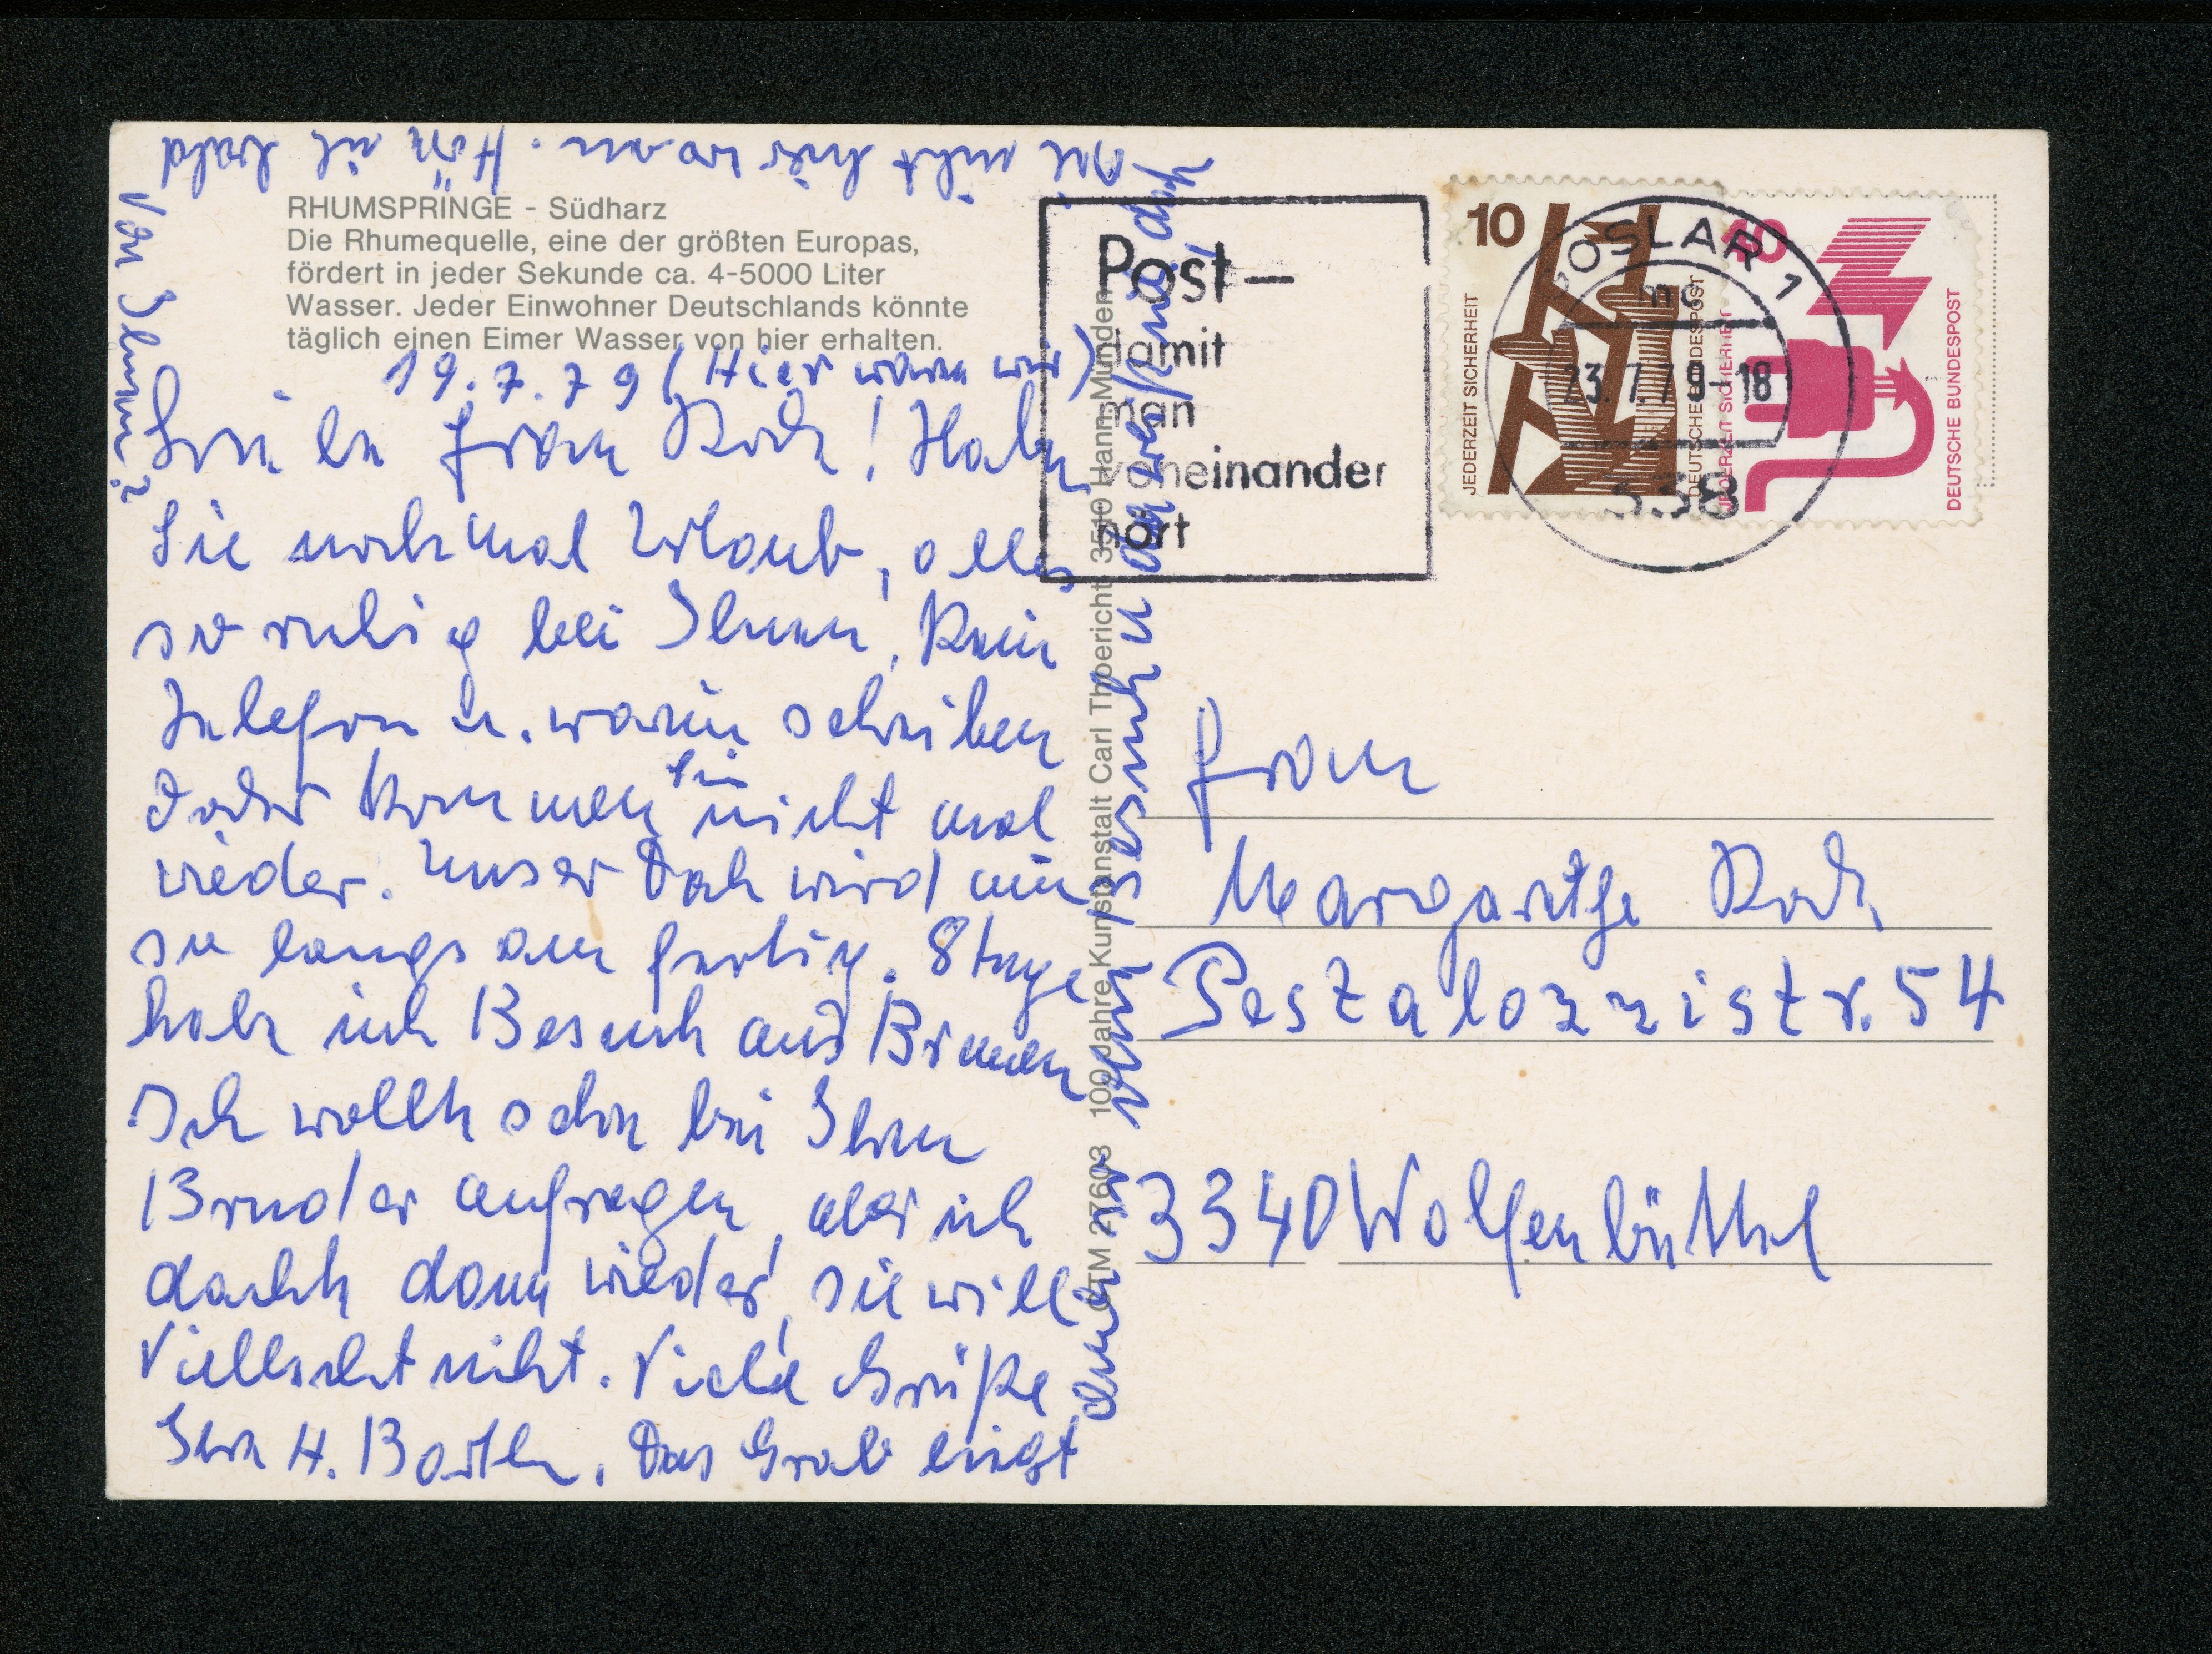 RHUMSPRINGE - Südharz
Die Rhumequelle, eine der größten Europas,
fördert in jeder Sekunde ca. 4-5000 Liter
Wasser. Jeder Einwohner Deutschlands könnte
täglich einen Eimer Wasser von hier erhalten.
19.7.79 (Hier waren wir)
Frau Koch! Haben
Sie nochmal Urlaub, alles
so ruhig bei Ihnen, Kein
Telefon u. warum schreiben
oder kommen Sie nicht mal
wieder. Unser Dach wird nun
so langsam fertig. 8 Tage
habe ich Besuch aus Bremen
Ich wollte schon bei Ihrem
Bruder anfragen, aber ich
dachte dann wieder, sie will
vielleicht nicht. Viele Grüße
Ihre H. Barthe. Das Grab liegt
nicht hier woan. Hör ich bald
Von Ihnen?
Post-
damit
man
voneinander
hört
10
JEDERZEIT SICHERHEIT
DEUTSCHE BUNDESPOST
40
JEDERZEIT SICHERHEIT
DEUTSCHE BUNDESPOST
GOSLAR 1
mc
23.7.79-18
338
CTM 27603 100 Jahre Kunstanstalt Carl Thoericht 3510 Hann. Münden
Frau
Margarethe Koch
Pestalozzistr. 54
3340 Wolfenbüttel